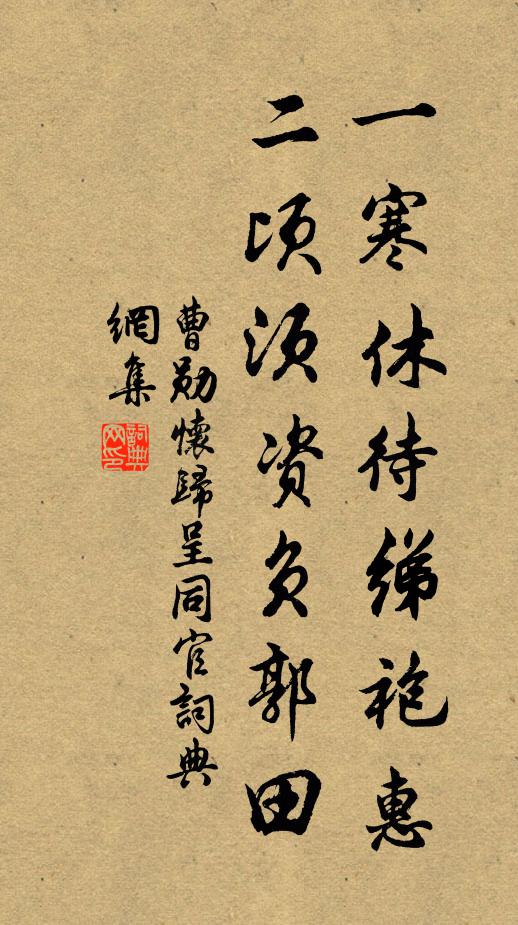 一寒休待綈袍惠
二頃須資負郭田
曹勛懷歸呈同官詞典
網集
詞典
网印